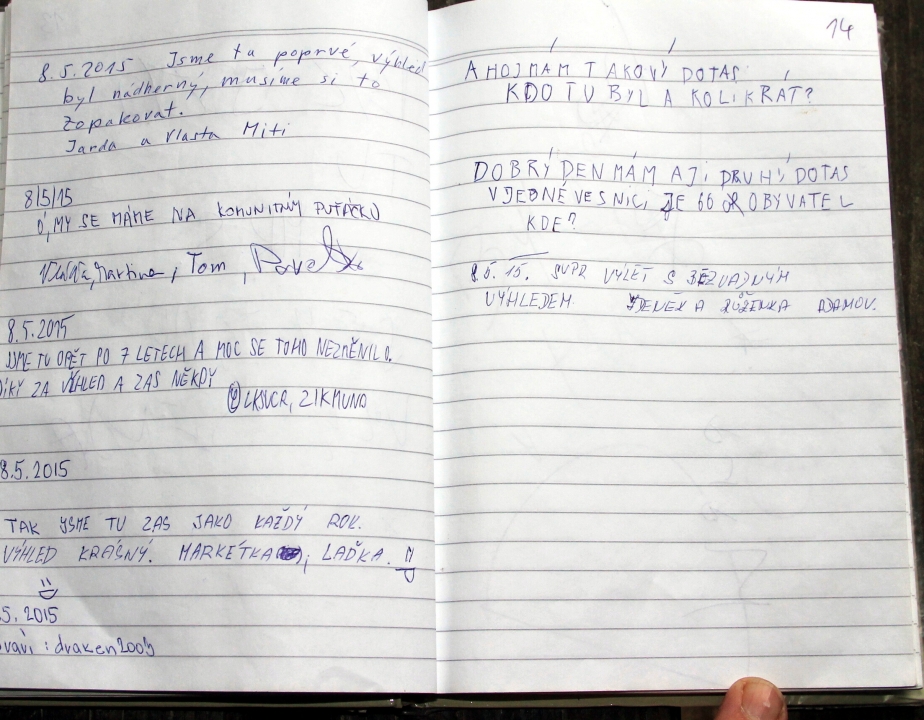 8.5.2015 Jsme tu poprvé, výhled
byl nádherný, musíme si to
zopakovat.
Jarda a Vlasta Miti
8/5/15
Ó, MY SE MÁME NA KOMUNITNÝM PUŤÁČKU
Martina, Tom, Pavel
8.5.2015
JSME TU OPĚT PO 7 LETECH A MOC SE TOHO NEZMĚNILO.
DÍKY ZA VÝHLED A ZAS NĚKDY
ZIKMUND
8.5.2015
TAK JSME TU ZAS JAKO KAŽDÝ ROK.
VÝHLED KRÁSNÝ. MARKÉTKA, LAĎKA.
5.2015
: draken2009
14
AHOJ MÁM TAKOVÝ DOTAS
KDO TU BYL A KOLIKRÁT?
DOBRÝ DEN MÁM AJI DRUHÝ DOTAS
V JEDNÉ VESNICI JE 60 OBYVATEL
KDE?
8.5.15. SUPR VÝLET S BEZVADNÝM
VÝHLEDEM. ZDENĚK A RŮŽENKA ADAMOV.